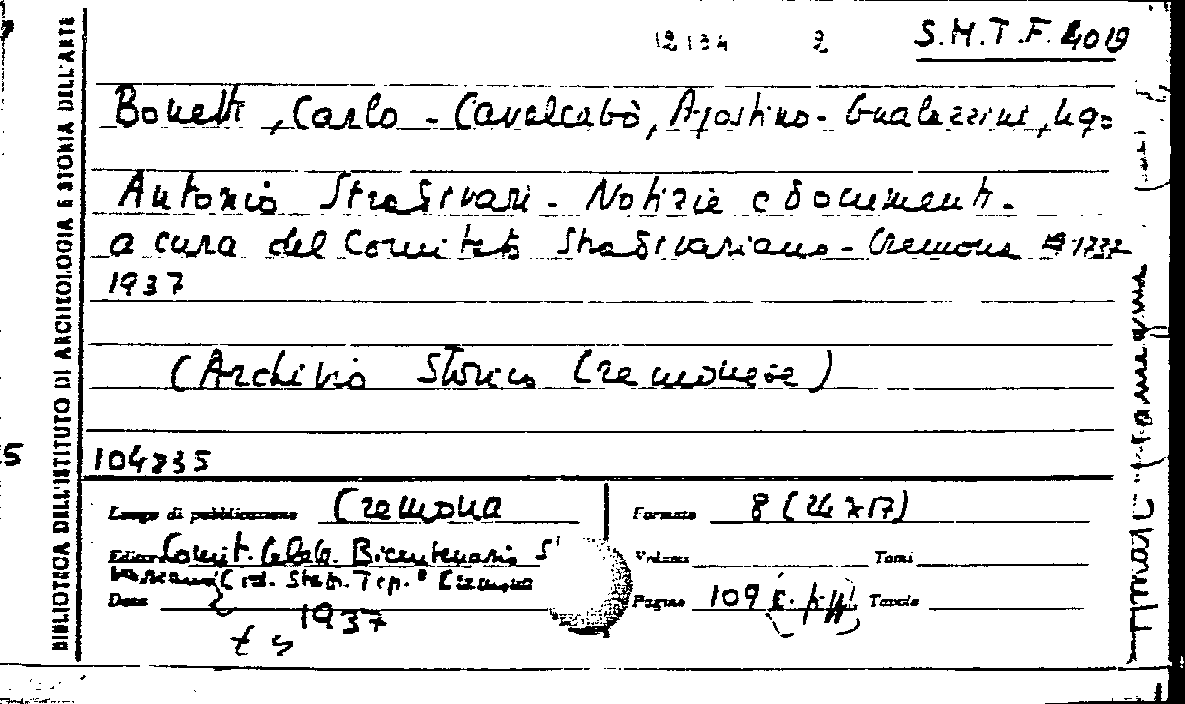 12134 2 S.M.T.F. 4019
Bonetti, Carlo - Cavalcabò, Agostino - Gualazzini, Ugo
Antonio Stradivari - Notizie e documenti -
a cura del Comitato Stradivariano - Cremona 1737
1937
(Archivio Storico Cremonese)
104835
BIBLIOTECA DELL'ISTITUTO DI ARCHEOLOGIA E STORIA DELL'ARTE
Luogo di pubblicazione Cremona
Editore Comit. Celeb. Bicentenario
Cremona
Data 1937
Formato 8 (24x17)
Volumi Tomi
Pagine 109 Tavole